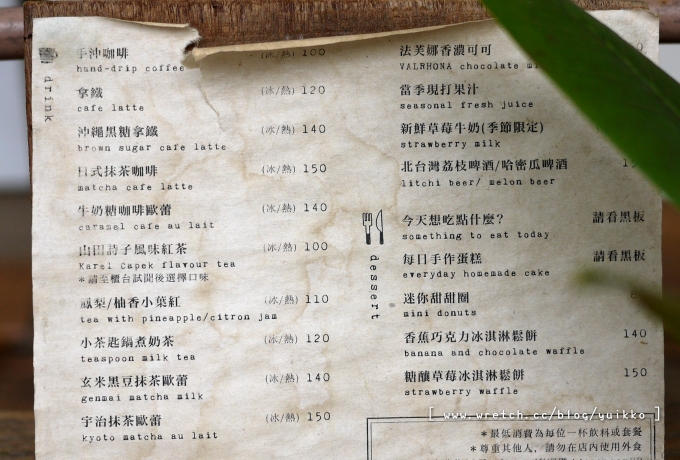 drink
手沖咖啡 (冰/熱) 100
hand-drip coffee
拿鐵 (冰/熱) 120
cafe latte
沖繩黑糖拿鐵 (冰/熱) 140
brown sugar cafe latte
日式抹茶咖啡 (冰/熱) 150
matcha cafe latte
牛奶糖咖啡歐蕾 (冰/熱) 140
caramel cafe au lait
山田詩子風味紅茶 (冰/熱) 100
Karel Capek flavour tea
*請至櫃台試聞後選擇口味
鳳梨/柚香小葉紅 (冰/熱) 110
tea with pineapple/citron jam
小茶匙鍋煮奶茶 (冰/熱) 120
teaspoon milk tea
玄米黑豆抹茶歐蕾 (冰/熱) 140
genmai matcha milk
宇治抹茶歐蕾 (冰/熱) 150
kyoto matcha au lait
法芙娜香濃可可
VALRHONA chocolate
當季現打果汁
seasonal fresh juice
新鮮草莓牛奶(季節限定)
strawberry milk
北台灣荔枝啤酒/哈密瓜啤酒
litchi beer/ melon beer
dessert
今天想吃點什麼? 請看黑板
something to eat today
每日手作蛋糕 請看黑板
everyday homemade cake
迷你甜甜圈
mini donuts
香蕉巧克力冰淇淋鬆餅 140
banana and chocolate waffle
糖釀草莓冰淇淋鬆餅 150
strawberry waffle
[ www.wretch.cc/blog/yuikko ]
*最低消費為每位一杯飲料或套餐
*尊重其他人,請勿在店內使用外食